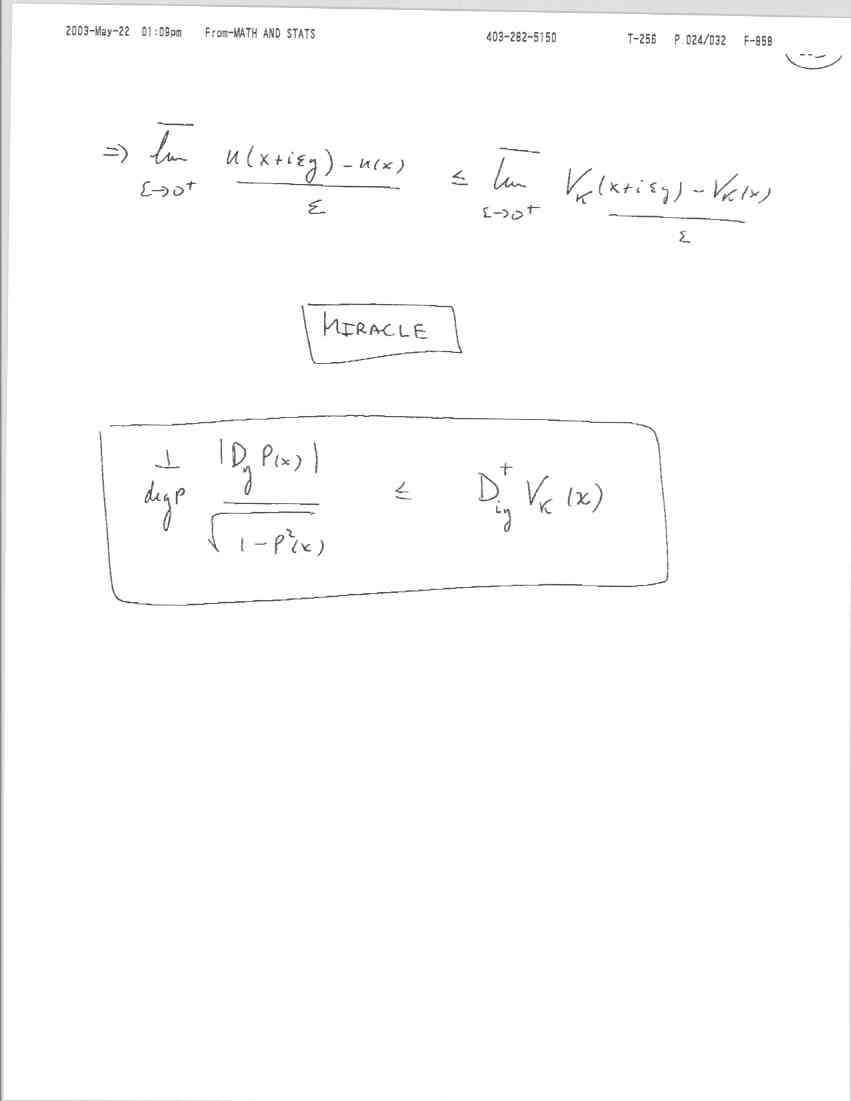 2003-May-22 01:08pm From-MATH AND STATS 403-282-5150 T-256 P.024/032 F-858
⇒ \overline{lim}_{ε→0⁺} \frac{u(x+iεy)-u(x)}{ε} ≤ \overline{lim}_{ε→0⁺} \frac{V_K(x+iεy)-V_K(x)}{ε}
MIRACLE
\frac{1}{deg P} \frac{|D_y P(x)|}{\sqrt{1-P²(x)}} ≤ D⁺_{iy} V_K(x)